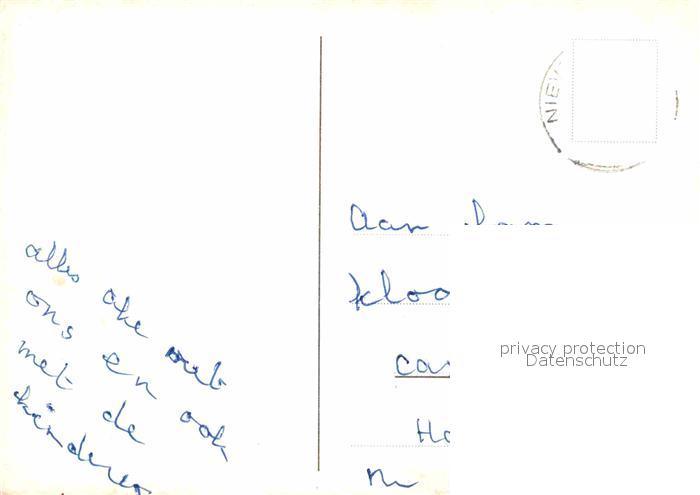 alles oke met
ons en ook
met de
kinderen
NIEU
Aan
kloo
ca
Ho
privacy protection
Datenschutz